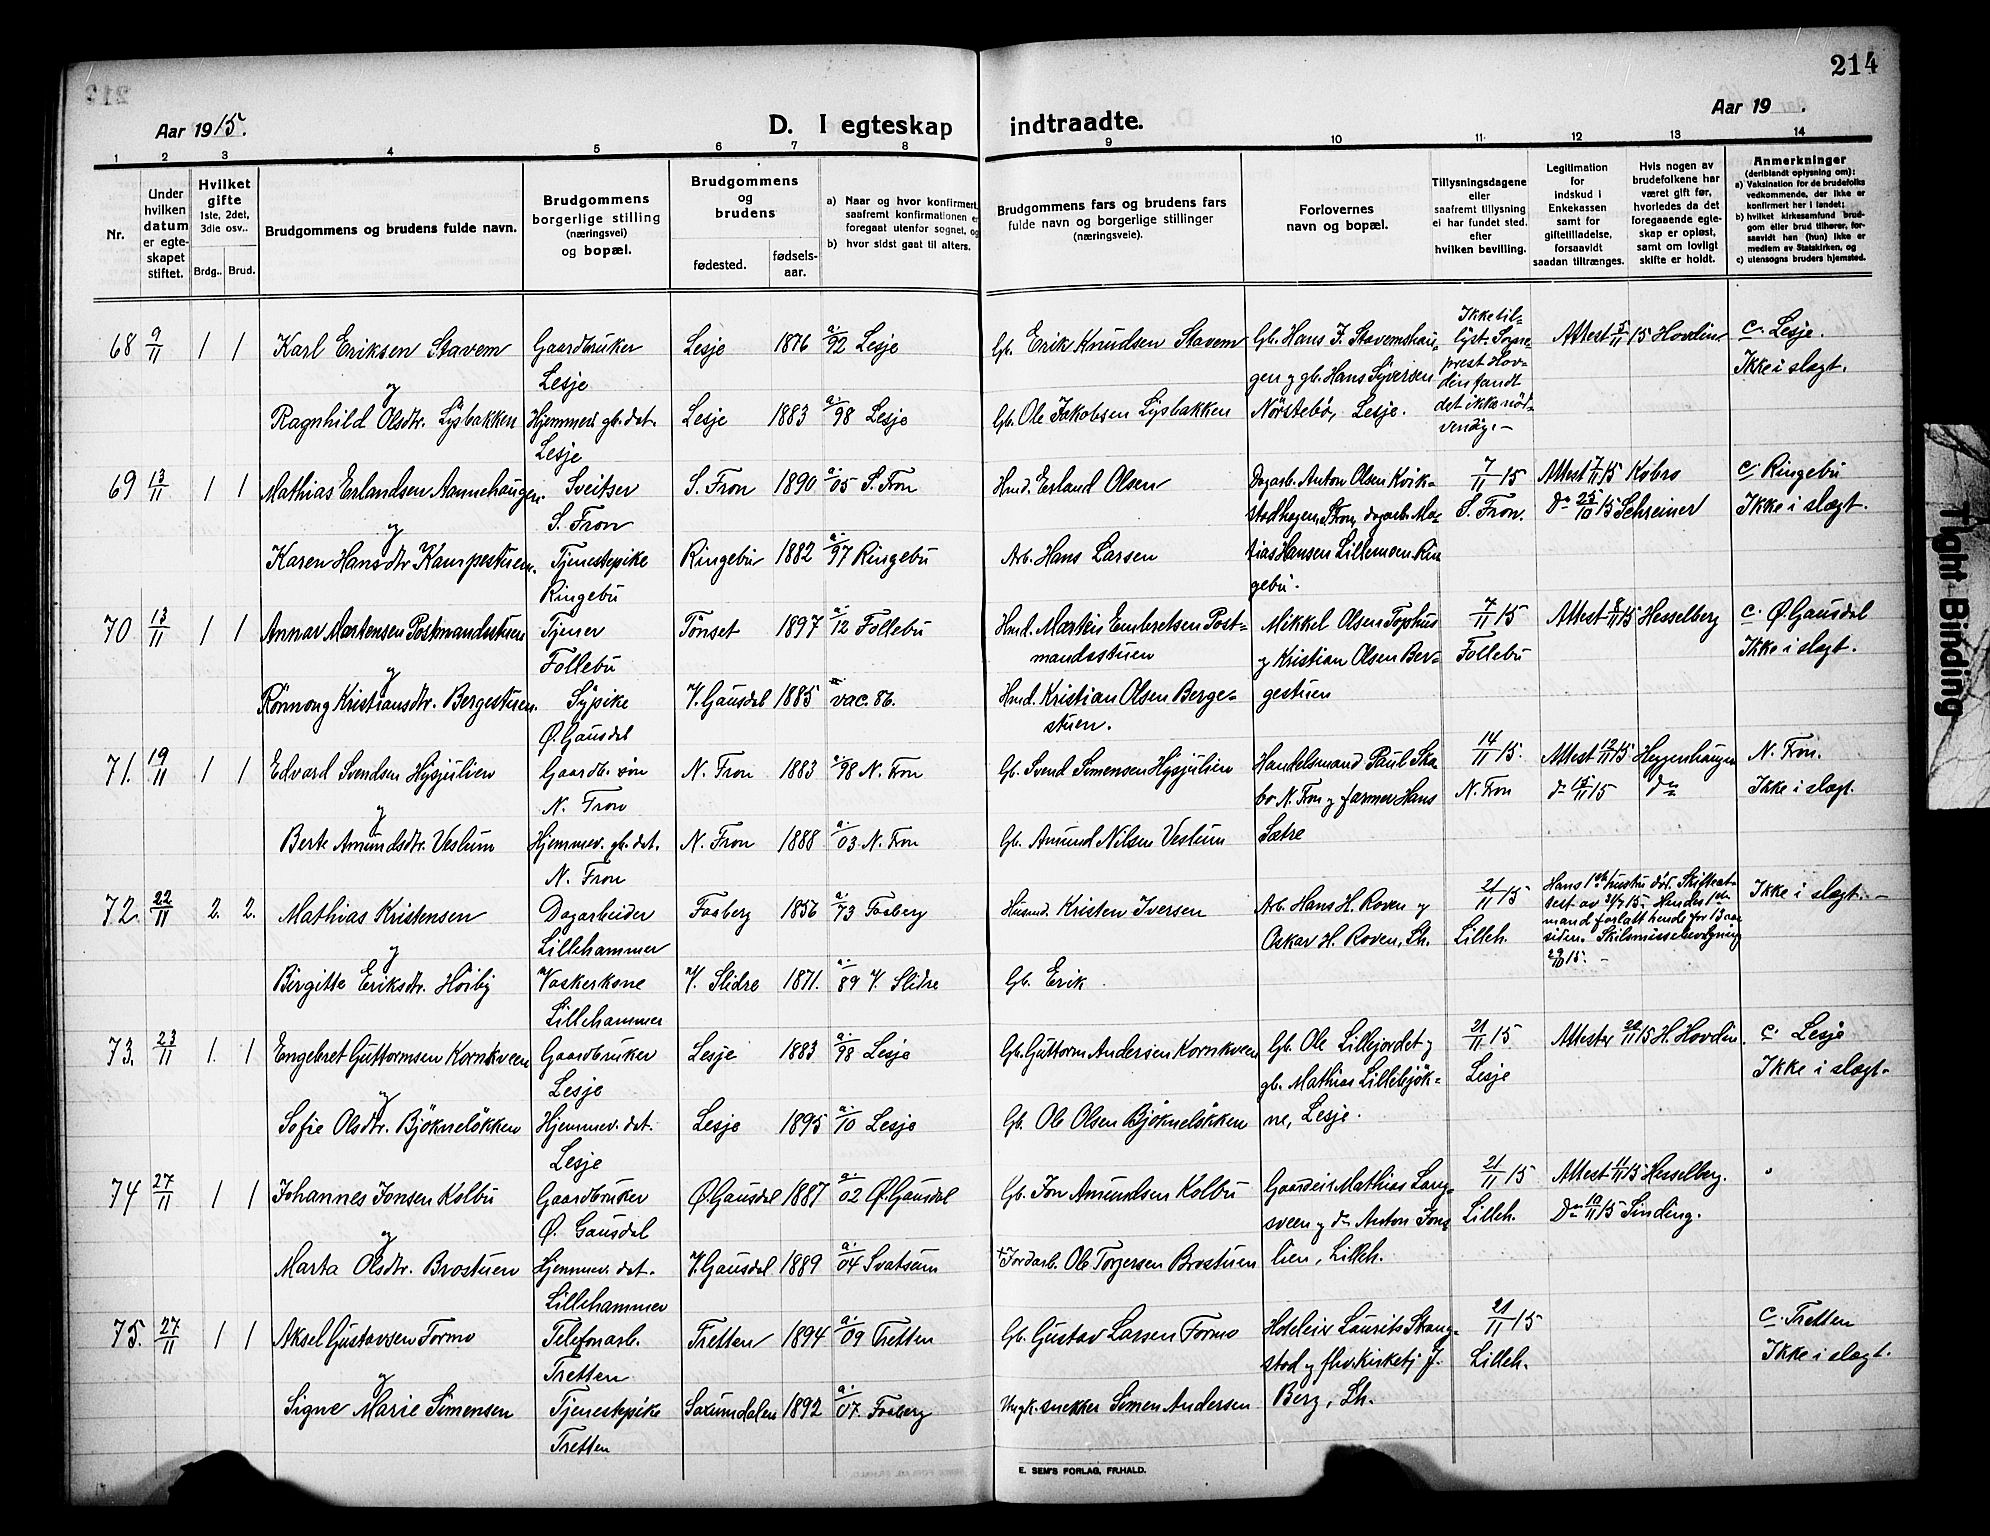 214
Aar 1915.
D. I egteskap indtraadte.
Aar 19 .
1 2 3 4 5 6 7 8 9 10 11 12 13 14
Nr.
Under hvilken datum er egteskapet stiftet.
Hvilket gifte 1ste, 2det, 3die osv..
Brdg.. Brud.
Brudgommens og brudens fulde navn.
Brudgommens borgerlige stilling (næringsvei) og bopæl.
Brudgommens og brudens
fødested. fødselsaar.
a) Naar og hvor konfirmert, saafremt konfirmationen er foregaat utenfor sognet, og
b) hvor sidst gaat til alters.
Brudgommens fars og brudens fars fulde navn og borgerlige stillinger (næringsveie).
Forlovernes navn og bopæl.
Tillysningsdagene eller saafremt tillysning ei har fundet sted. efter hvilken bevilling.
Legitimation for indskud i Enkekassen samt for giftetilladelse, forsaavidt saadan tiltrænges.
Hvis nogen av brudefolkene har været gift før, hvorledes da det foregaaende egteskap er opløst, samt om lovligt skifte er holdt.
Anmerkninger (deriblandt oplysning om):
a) Vaksination for de brudefolks vedkommende, der ikke er konfirmert her i landet;
b) hvilket kirkesamfund brudgom eller brud tilhører, forsaavidt han (hun) ikke er medlem av Statskirken, og
c) utensogns bruders hjemsted.
68 9/11 1 1 Karl Eriksen Stavem Gaardbruker Lesje Lesje 1876 a. 92 Lesje Gb. Erik Knudsen Stavem Gb. Hans J. Stavemshaugen og gb. Hans Syversen Nörstebö, Lesje. Ikke tillyst. Sogneprest Hovdin fandt det ikke nödvendig.- Attest 5/11 15 Hovdin c. Lesje. Ikke i slægt.
og
Ragnhild Olsdtr. Lysbakken Hjemmev. gb. dat. Lesje Lesje 1883 a. 98 Lesje Gb. Ole Jakobsen Lysbakken
69 13/11 1 1 Mathias Erlandsen Aannehaugen. Sveitser S. Fron S. Fron 1890 a. 05 S. Fron Hmd. Erland Olsen Dagarb. Anton Olsen Kvikstadhagen, S. Fron, dagarb. Matias Hansen Lillemoen Ringebu. 7/11 15 S. Fron. Attest 7/11 15 Kobro Do 25/10 15 Schreiner c. Ringebu Ikke i slægt.
og
Karen Hansdtr. Kampestuen. Tjenestepike Ringebu Ringebu 1882 a. 97 Ringebu Arb. Hans Larsen
70 13/11 1 1 Annar Martensen Postmandsstuen Tjener Follebu Tönset 1897 a. 12 Follebu Hmd. Martin Embretsen Postmandsstuen Mikkel Olsen Tophus og Kristian Olsen Bergestuen 7/11 15 Follebu Attest 8/11 15 Hesselberg c. Ø. Gausdal Ikke i slægt.
og
Rönnaug Kristiansdtr. Bergestuen. Sypike Ø. Gausdal V. Gausdal 1885 vac. 86. Hmd. Kristian Olsen Bergestuen.
71. 19/11 1 1 Edvard Svendsen Hysjulien Gaardb. sön N. Fron N. Fron 1883 a. 98 N. Fron Gb. Svend Simensen Hysjulien Handelsmand Paul Skabo N. Fron og farmer Hans Sætre 14/11 15. N. Fron Attest 12/11 15 Heggenhaugen do 15/11 15 do N. Fron. Ikke i slægt.
og
Berte Amundsdtr. Veslum Hjemmev. gb. dat. N. Fron N. Fron 1888 a. 03 N. Fron Gb. Amund Nilsen Veslum
72. 22/11 2. 2. Mathias Kristensen Dagarbeider Lillehammer Faaberg 1856 a. 73 Faaberg Husmd. Kristen Iversen Arb. Hans H. Roven og Oskar H. Roven, Lh. 21/11 15 Lilleh. Hans 1ste hustru död. Skifteattest av 31/7 15. Hendes 1ste mand forlatt hende for 13 aar siden. Skilsmissebevilgning 29/10 15. - Ikke i slægt. -
og
Birgitte Eriksdtr. Höiby Vaskerkone Lillehammer V. Slidre 1871. a. 89 V. Slidre Gb. Erik
73. 23/11 1. 1 Engebret Guttormsen Kornkveen Gaardbruker Lesje Lesje 1883 a. 98 Lesje Gb. Guttorm Andersen Kornkveen Gb. Ole Lillejordet og gb. Mathias Lillebjökne, Lesje. 21/11 15 Lesje Attester 21/11 15 H. Hovdin. c. Lesje Ikke i slægt.
og
Sofie Olsdtr. Bjöknelökken Hjemmev. dat. Lesje Lesje 1895 a. 10 Lesje Gb. Ole Olsen Bjöknelökken
74 27/11 1 1 Johannes Jonsen Kolbu Gaardbruker Ø. Gausdal Ø Gausdal 1887 a. 02 Ø. Gausdal Gb. Jon Amundsen Kolbu Gaardeier Mathias Langsveen og do Anton Jonslien, Lilleh. 21/11 15 Lilleh. Attest 11/11 15 Hesselberg. Do 19/11 15 Sinding.
og
Marta Olsdtr. Brostuen Hjemmev. dat. Lillehammer V. Gausdal 1889 a. 04 Svatsum + Jordarb. Ole Torgersen Brostuen
75. 27/11 1 1 Aksel Gustavsen Formo Telefonarb. Tretten Tretten 1894 a. 09 Tretten Gb. Gustav Larsen Formo Hoteleier Laurits Skaugstad og fhv. kirketj. J. Berg, Lh. 21/11 15 Lilleh. c. Tretten Ikke i slægt.
og
Signe Marie Simensen Tjenestepike Tretten Saxumdalen 1892 a. 07. Faaberg Ungk. snekker Simen Andersen
E. SEM'S FORLAG, FR.HALD.
Tight Binding